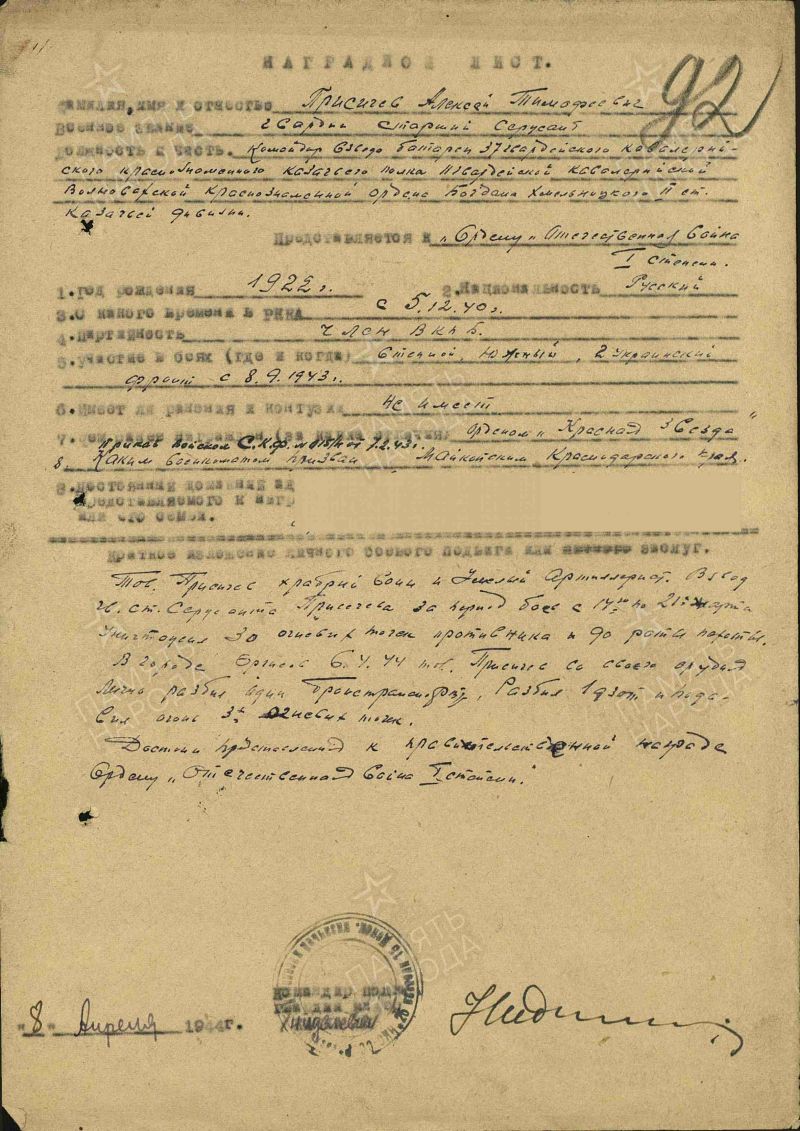 92
НАГРАДНОЙ ЛИСТ.
Фамилия, имя и отчество Присичев Алексей Тимофеевич
Военное звание Гвардии Старший Сержант
Должность и часть. Командир взвода батареи 37 гвардейского кавалерий-
ского краснознаменного казачьего полка 11 гвардейской кавалерийской
Волновахской краснознаменной ордена Богдана Хмельницкого II ст.
казачьей дивизии.
Представляется к „Ордену „Отечественная Война
I степени.
1. год рождения 1922 г. 2. Национальность Русский
3. С какого времени в РККА с 5.12.40 г.
4. Партийность Член ВКПБ.
5. Участие в боях (где и когда) Степной, Южный, 2 Украинский
фронт с 8.9.1943 г.
6. Имеет ли ранения и контузии не имеет
7. Орденом „Красная Звезда"
Приказ войском С.К.Ф. от 7.2.43 г.
8. Каким военкоматом призван Майкопским, Краснодарского края.
9. Постоянный домашний ад
представляемого к нагр
или его семьи.
Краткое изложение личного боевого подвига или заслуг.
Тов. Присичев храбрий воин и умелий Артиллерист. Взвод
Гв. ст. Сержанта Присичева за период боев с 14 по 21 марта
Уничтожил 30 огневых точек противника и до роты пехоты.
В городе 6.4.44 тов. Присичев со своего орудия
Лично разбил один Бронетранспортер, Разбил 1 дзот и пода-
вил огонь 3х огневых точек.
Достоин представления к правительственной награде
Ордену „Отечественная Война I степени."
Командир полка
"8" Апреля 1944г.
ПАМЯТЬ НАРОДА